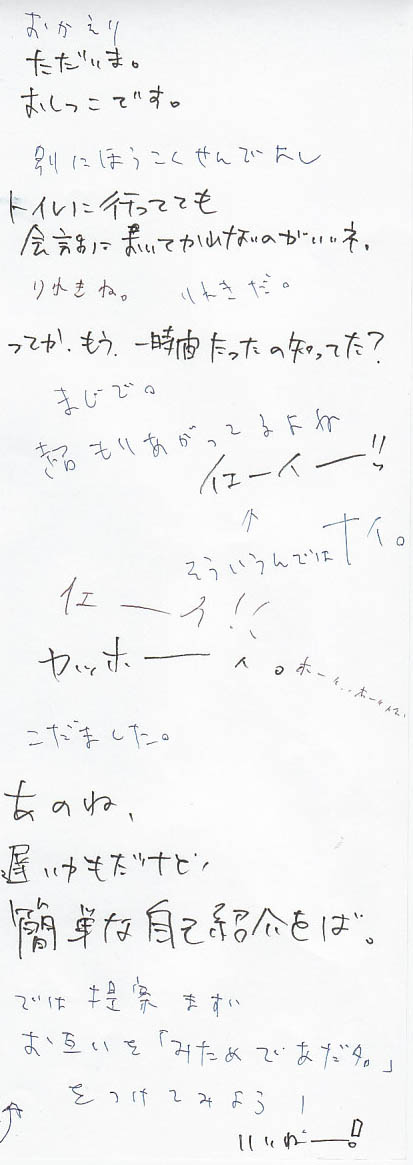 おかえり
ただいま。
おしっこです。
別にほうこくせんでよし
トイレに行ってても
会話に置いてかれないのがいいネ、
りれきね。 りれきだ。
ってか、もう、一時間たったの知ってた?
まじで。
超もりあがってるよね
イエーイー!!
↑
そういうんではナイ。
イエーイ!!
ヤッホーィ。ホーィ..ホーィ...
こだました。
あのね、
遅いかもだけど、
簡単な自己紹介をば。
では提案
お互いを「みためであだ名。」
をつけてみよう!
↑
いいねー!